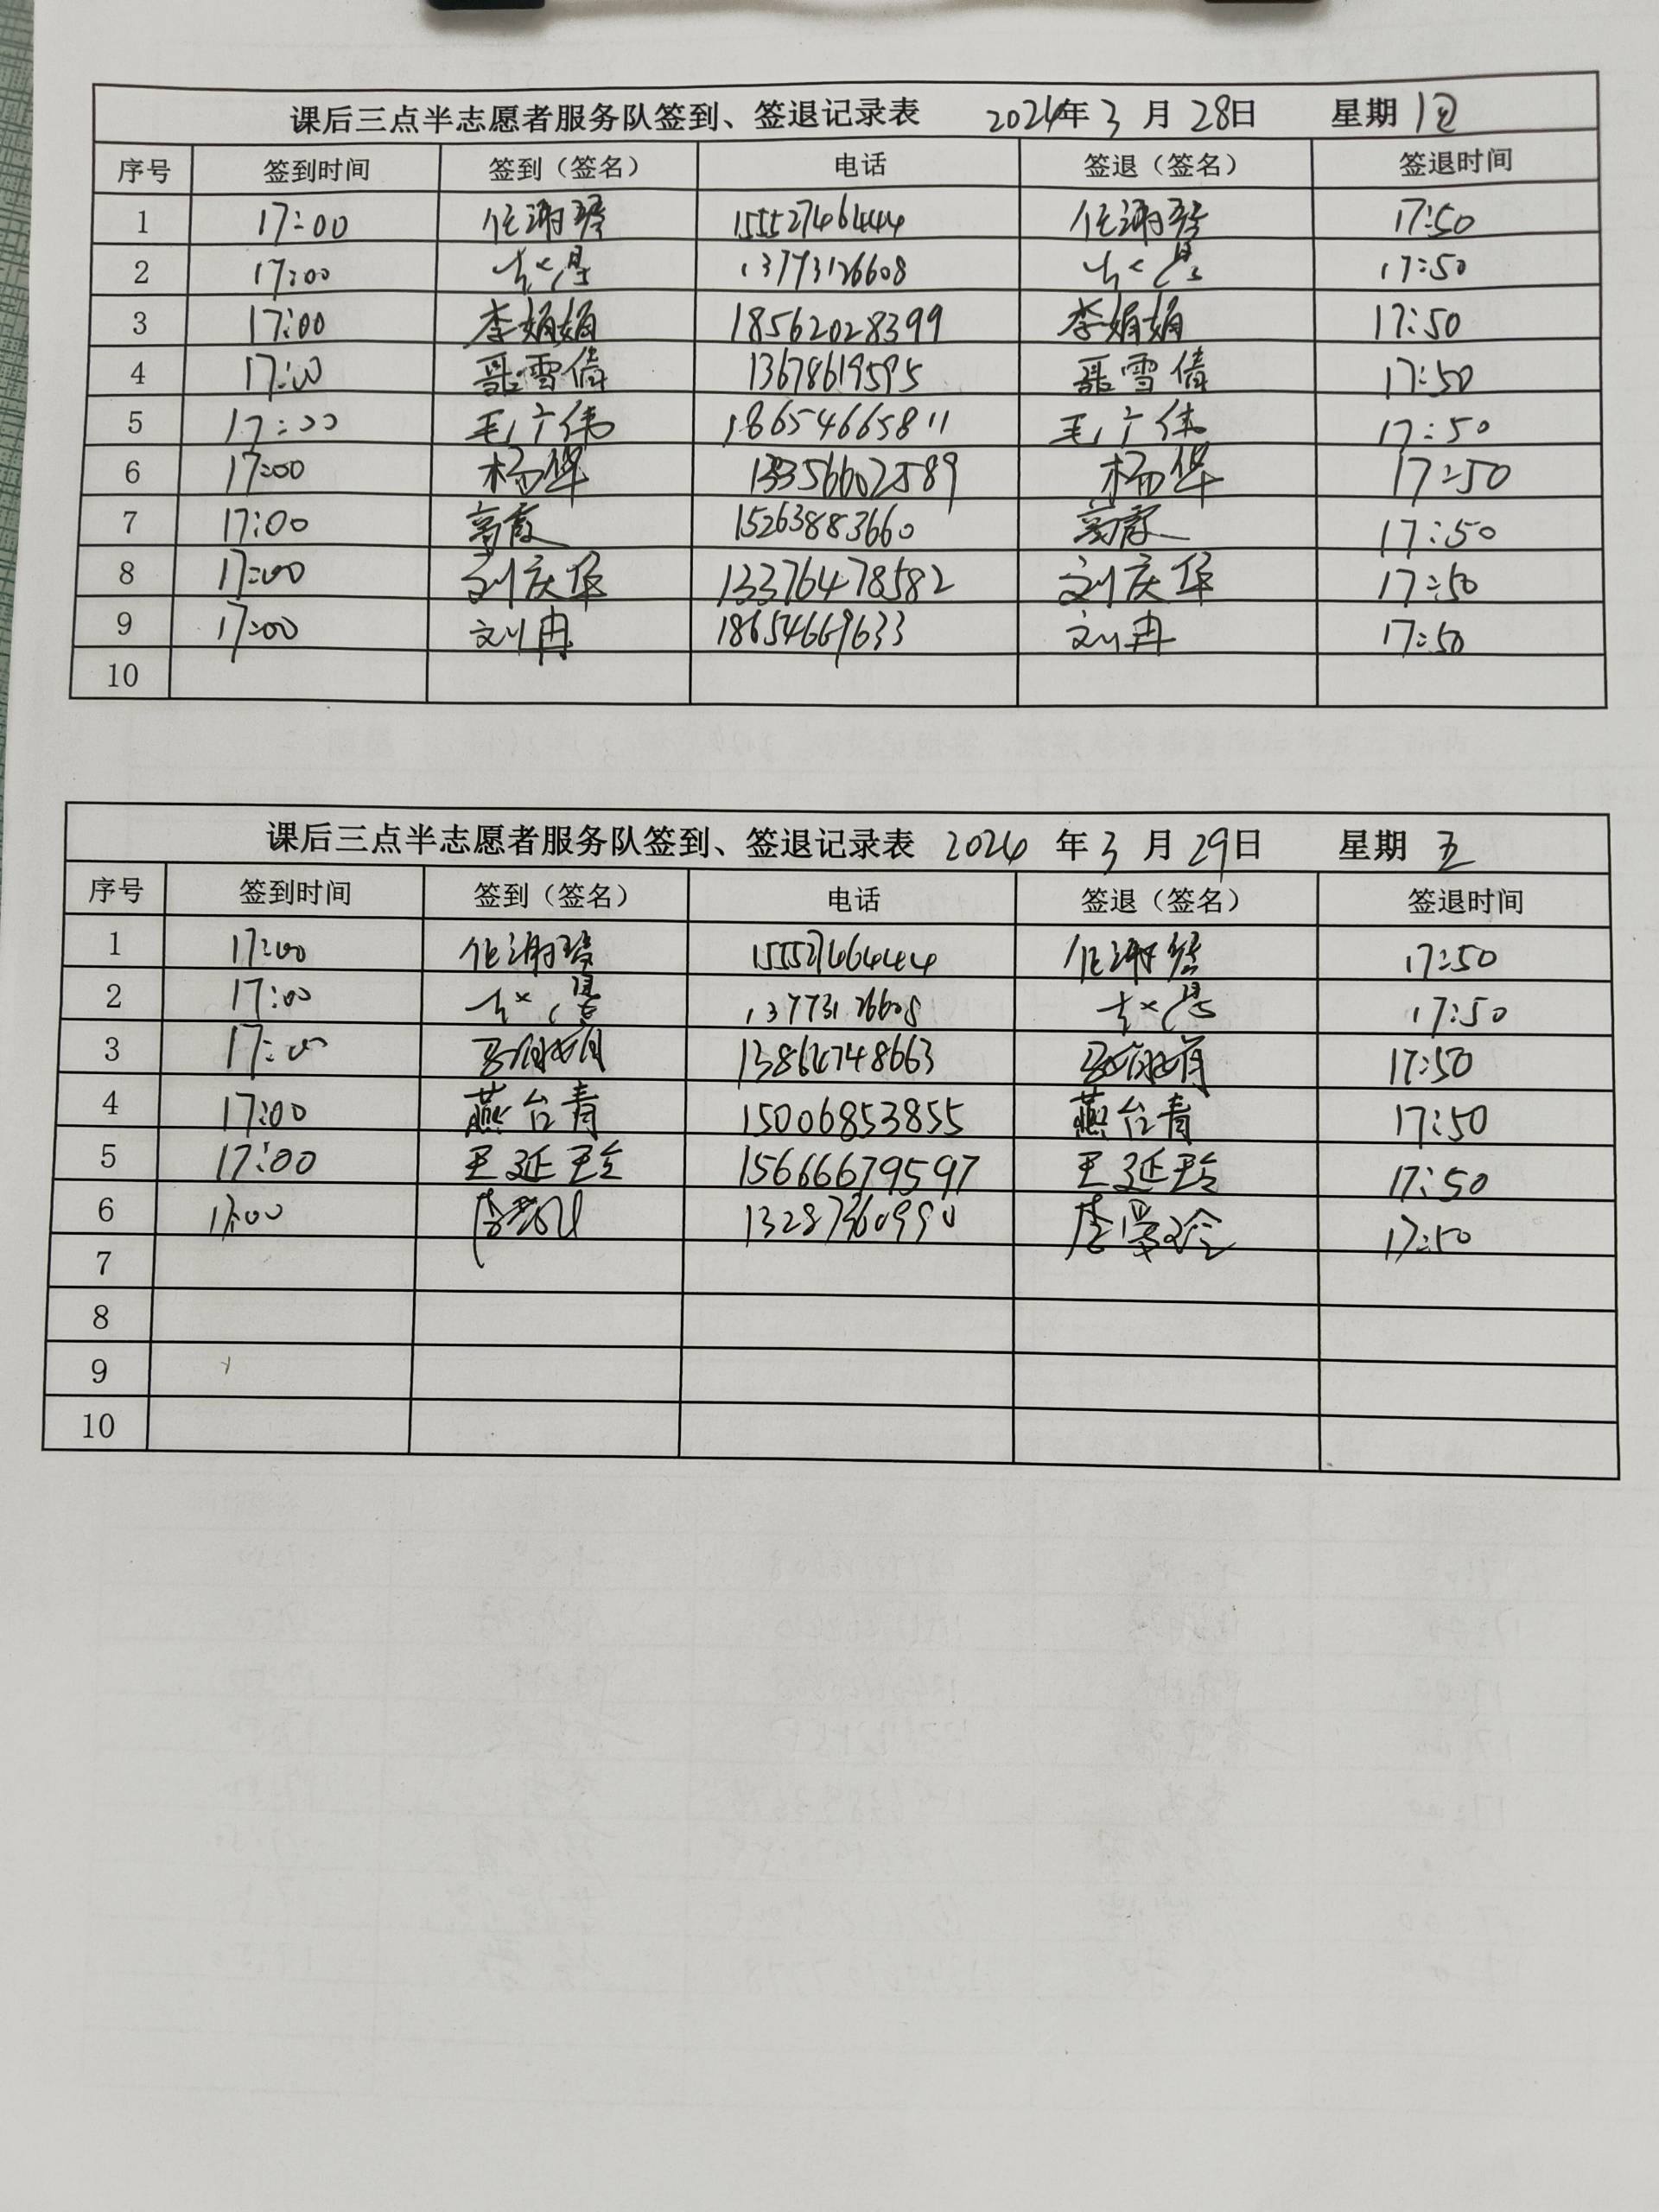 课后三点半志愿者服务队签到、签退记录表 2024年 3 月 28日 星期 四
序号 签到时间 签到（签名） 电话 签退（签名） 签退时间
1 17:00 15552746444 17:50
2 17:00 13773126608 17:50
3 17:00 李娟娟 18562028399 李娟娟 17:50
4 17:00 聂雪倩 13678619595 聂雪倩 17:50
5 17:00 毛广伟 18654665811 毛广伟 17:50
6 17:00 杨华 13356602589 杨华 17:50
7 17:00 高霞 15263883660 高霞 17:50
8 17:00 刘庆华 13376478582 刘庆华 17:50
9 17:00 刘冉 18654669633 刘冉 17:50
10
课后三点半志愿者服务队签到、签退记录表 2024 年 3 月 29日 星期 五
序号 签到时间 签到（签名） 电话 签退（签名） 签退时间
1 17:00 15552746444 17:50
2 17:00 13773126608 17:50
3 17:00 13864748663 17:50
4 17:00 燕台青 15006853855 燕台青 17:50
5 17:00 王延玲 15666679597 王延玲 17:50
6 17:00 13287360990 17:50
7
8
9
10